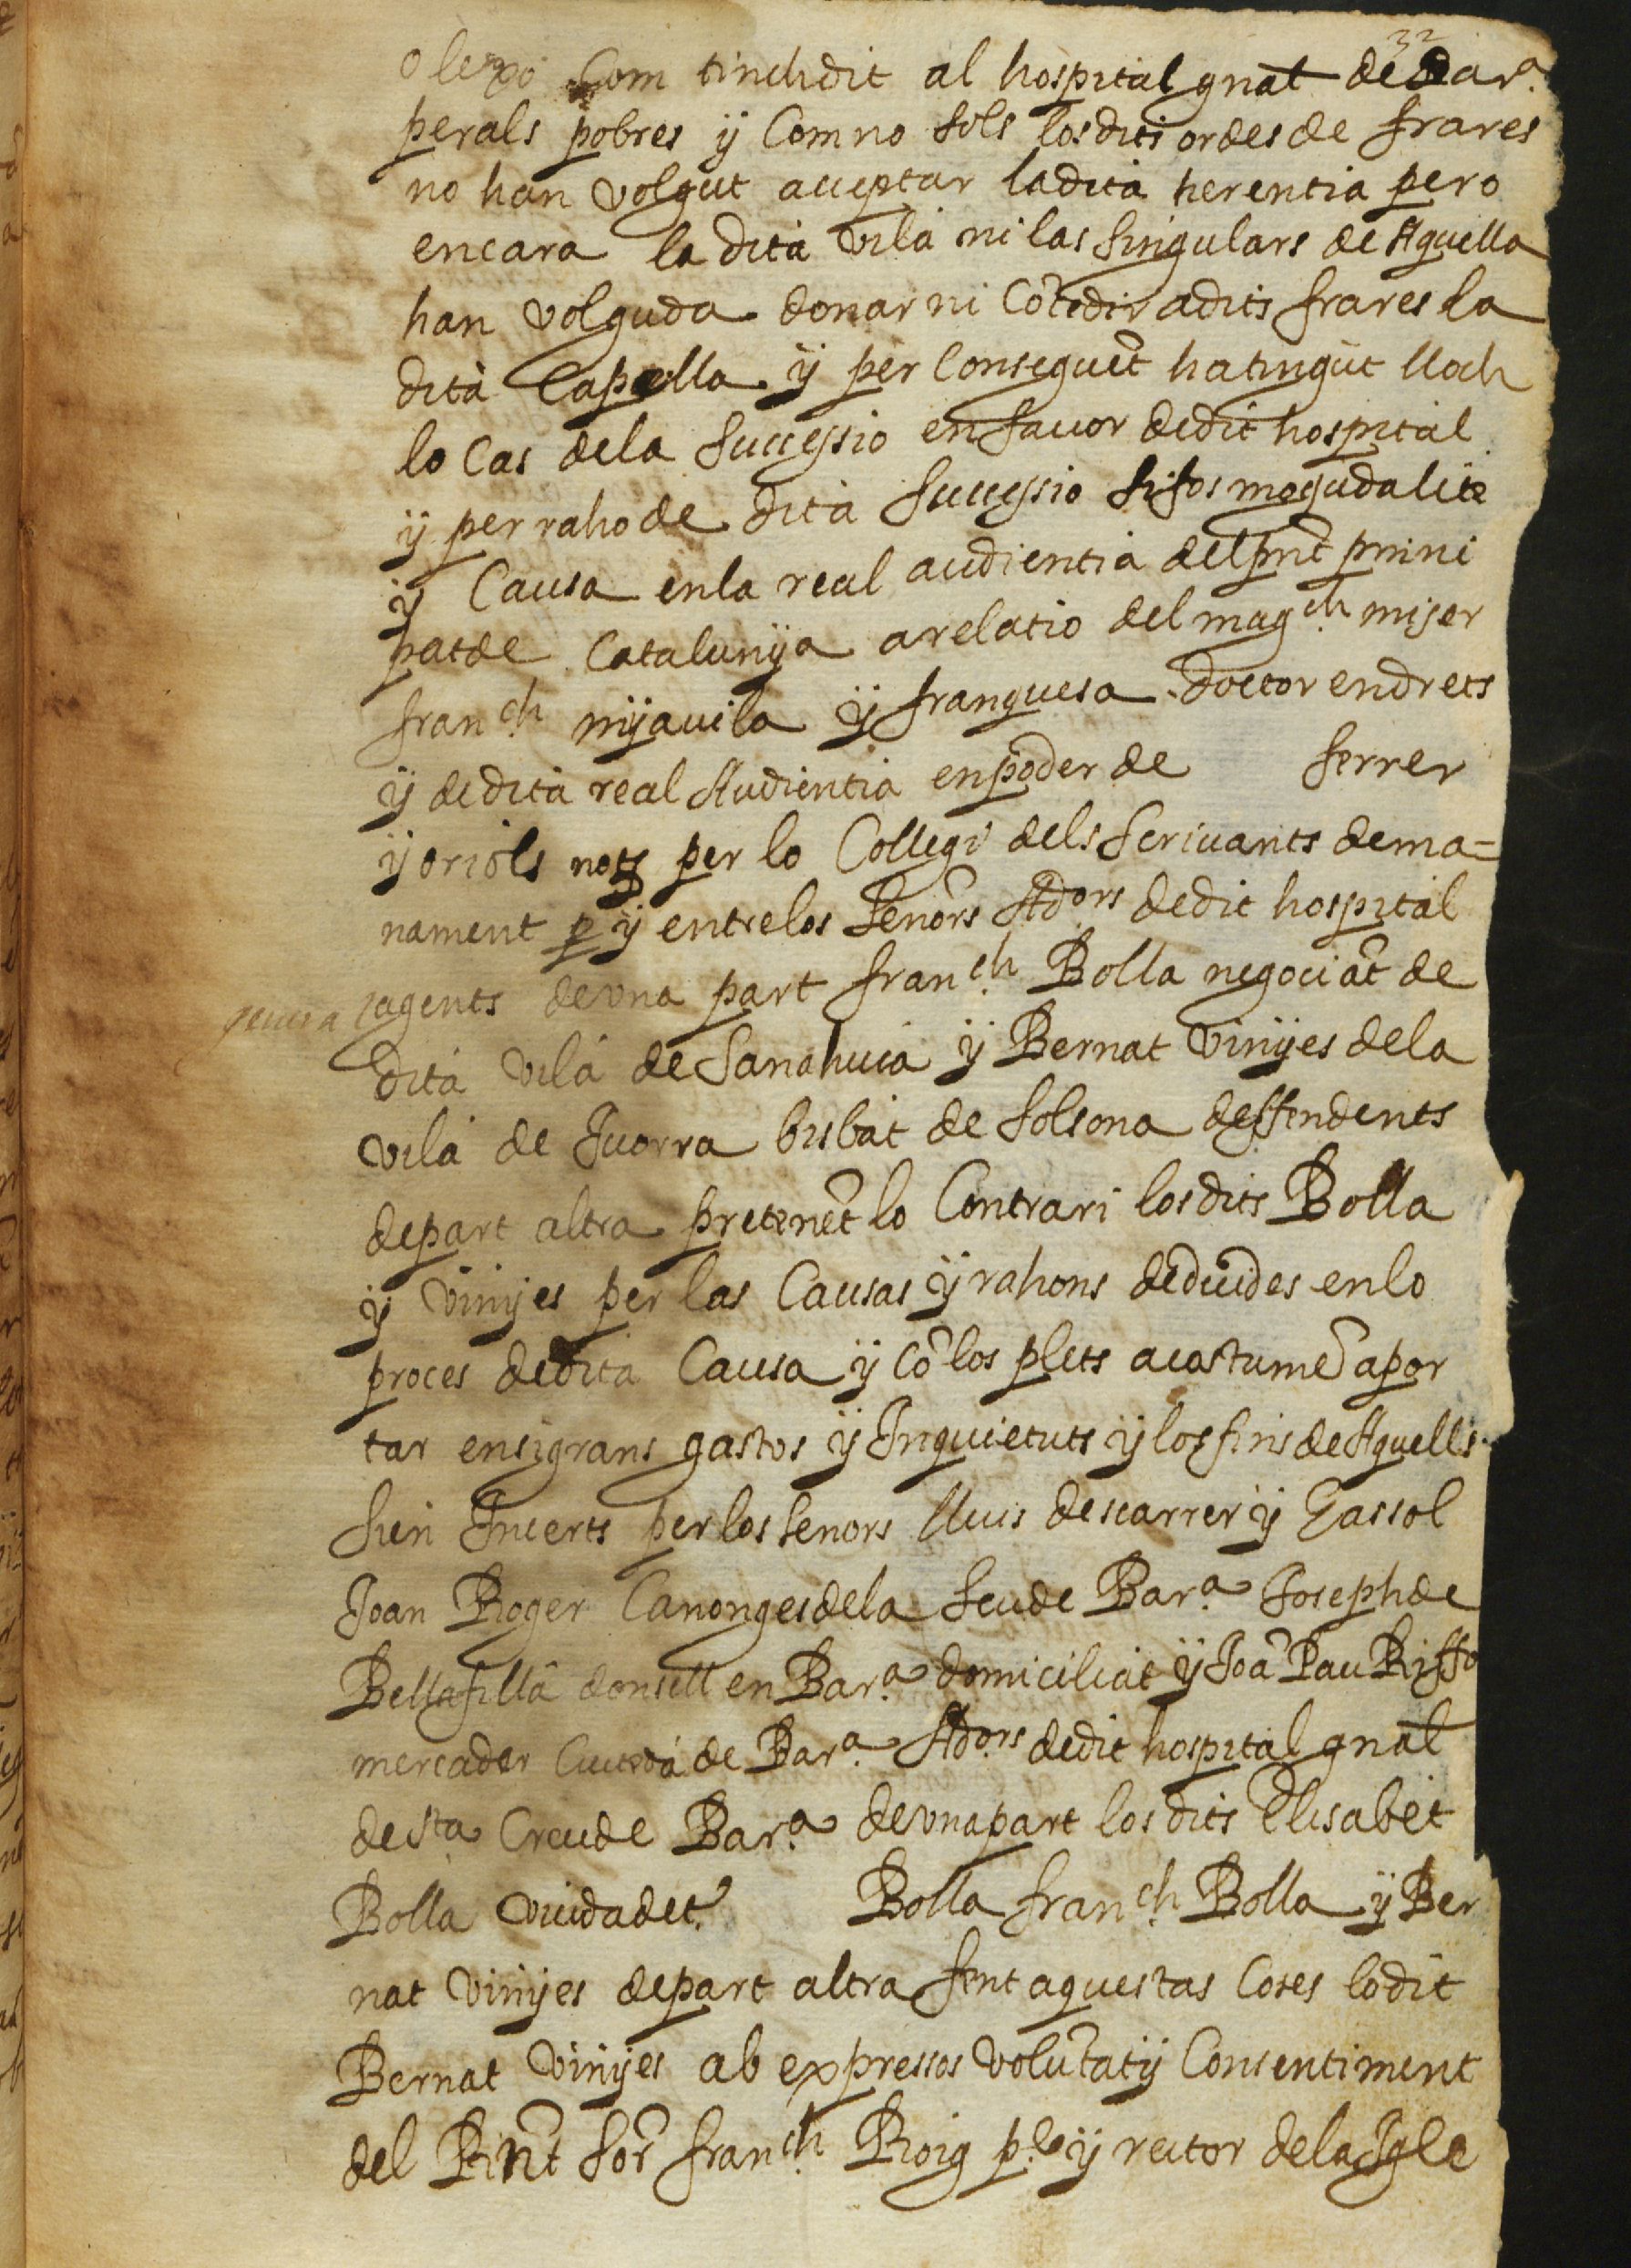 32
o lexo Com tinch dit al hospital gnāl de Bar.ª
perals pobres ÿ Com no sols los dits ordes de frares
no han volgut acceptar la dita herentia pero
encara la dita vila ni las singulars de Aquella
han volguda donar ni Cōcedir a dits frares la
dita Capella ÿ per Conseguēt ha tingut lloch
lo Cas dela successio en favor de dit hospital
ÿ per raho de dita successio sisos moguda lite
ÿ Causa en la real audientia del pnt prini
pat de Catalunÿa a relatio del mag.ch miser
fran.ch mÿavila ÿ franquesa doctor en drets
ÿ de dita real Audientia en poder de ferrer
ÿ oriols nots per lo Collegi dels scrivants de ma=
nament p ÿ entre los senōrs Ad.ors de dit hospital
agents de una part fran.ch Bolla negociāt de
dita vila de Sanahuia ÿ Bernat vinÿes dela
vila de Juorra bisbat de solsona deffendents
de part altra pretenēt lo Contrari los dits Bolla
ÿ vinÿes per las Causas ÿ rahons deduides en lo
proces de dita Causa ÿ Cō los plets acostumē apor
tar ensi grans gastos ÿ Inquietuts ÿ los fins de Aquells
sien Incerts per los senors lluis descarrer ÿ Gassol
Joan Roger Canonges dela seu de Bar.ª Joseph de
Bellafilla donsell en Bar.ª domiciliat ÿ Joā Pau Riffo
mercader Ciutedá de Bar.ª Ad.ors de dit hospital gnāl
de s.ta Creu de Bar.ª de una part los dits Elisabet
Bolla viuda det. Bolla fran.ch Bolla ÿ Ber
nat vinÿes de part altra sent aquestas Coses lo dit
Bernat vinÿes ab expressos volūtat ÿ Consentiment
del Rnt sōr fran.ch Roig p.re ÿ rector dela Igle